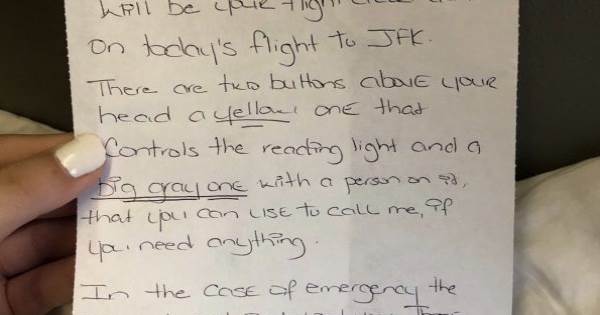 will be your flight
On today's flight to JFK.
There are two buttons above your
head a yellow one that
Controls the reading light and a
big gray one with a person on it,
that you can use to call me, if
you need anything.
In the case of emergency the